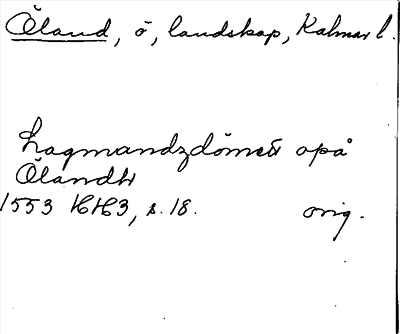 Öland, ö, landskap, Kalmar l.
Lagmandzdömett opå
Ölandh
1553 HH3, s. 18. orig.